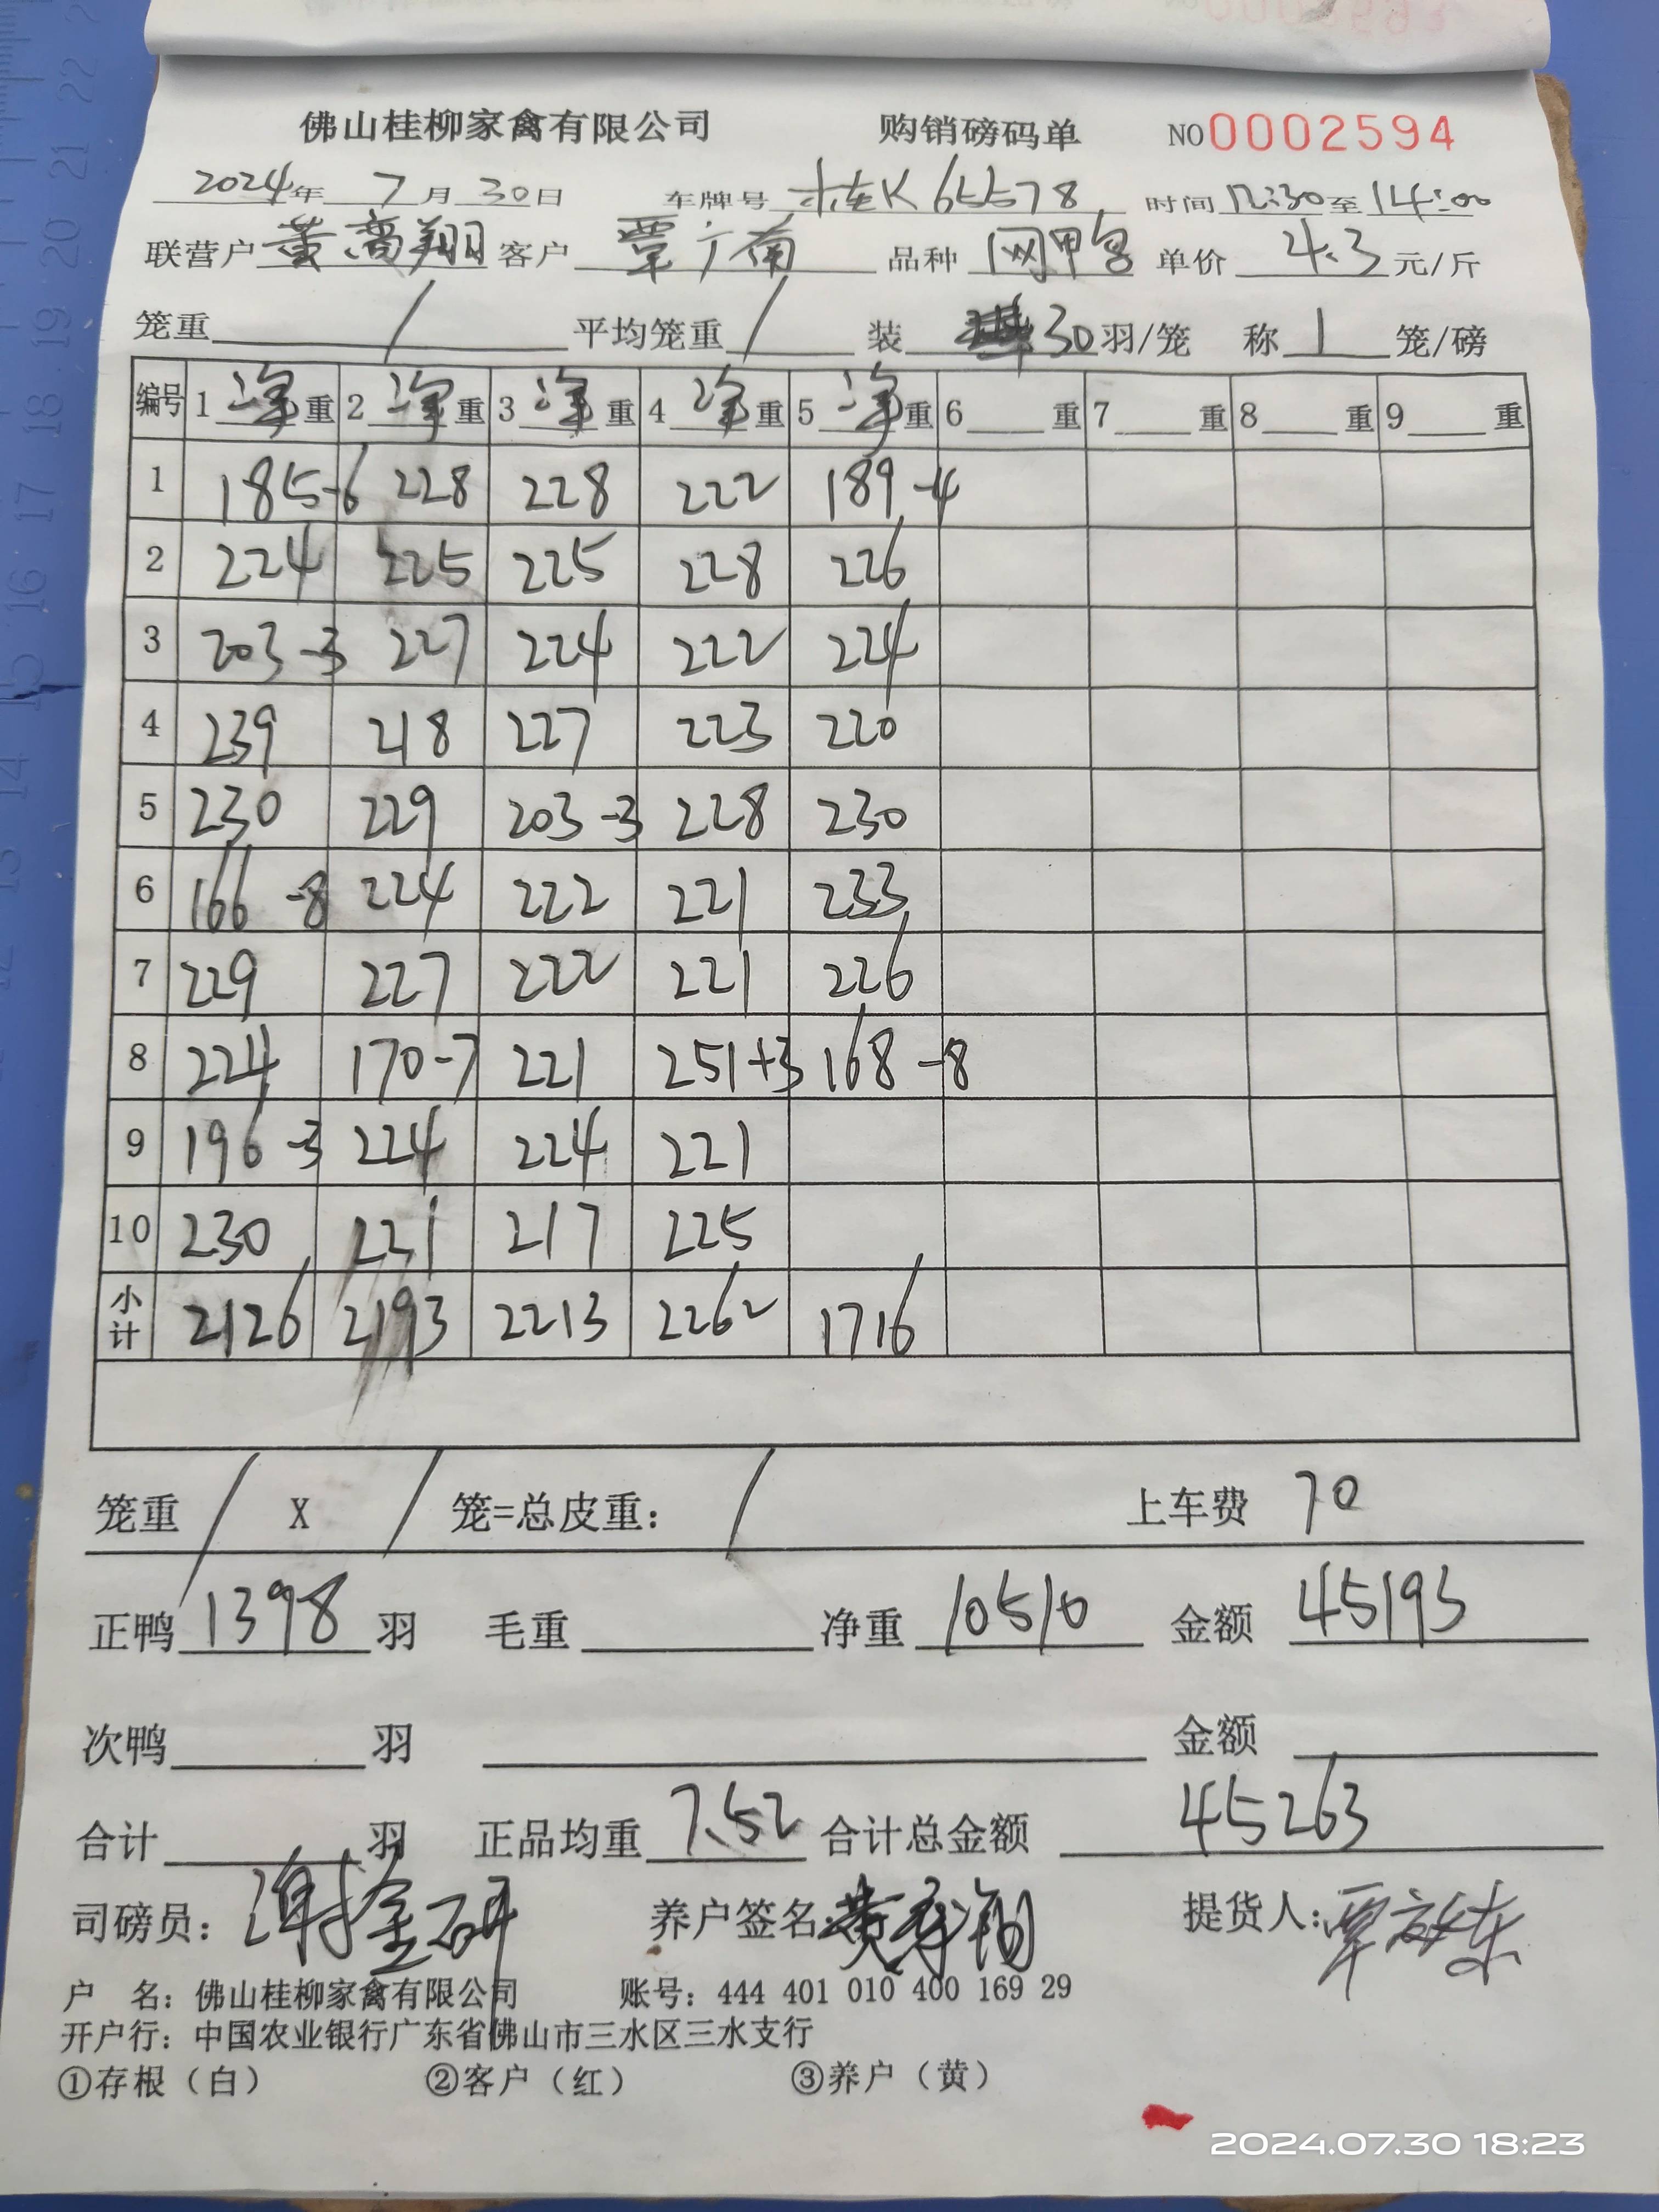 佛山桂柳家禽有限公司 购销磅码单 NO 0002594
2024年 7月 30日 车牌号 桂K65578 时间 12:30至14:00
联营户 黄 翔 客户 覃广南 品种 网甲 单价 4.3 元/斤
笼重 / 平均笼重 / 装 30羽/笼 称 1 笼/磅
编号 1 净重 2 净重 3 净重 4 净重 5 净重 6 重 7 重 8 重 9 重
1 185-6 228 228 222 189-4
2 224 225 225 228 226
3 203-3 227 224 222 224
4 239 218 227 223 220
5 230 229 203-3 228 230
6 166-8 224 222 221 233
7 229 227 222 221 226
8 224 170-7 221 251+3 168-8
9 196-3 224 224 221
10 230 221 217 225
小计 2126 2193 2213 2262 1716
笼重 / X / 笼=总皮重: / 上车费 70
正鸭 1398 羽 毛重 净重 10510 金额 45193
次鸭 羽 金额
合计 羽 正品均重 7.52 合计总金额 45263
司磅员: 谢金研 养户签名 黄 翔 提货人: 覃 东
户 名: 佛山桂柳家禽有限公司 账号: 444 401 010 400 169 29
开户行: 中国农业银行广东省佛山市三水区三水支行
①存根（白） ②客户（红） ③养户（黄）
2024.07.30 18:23